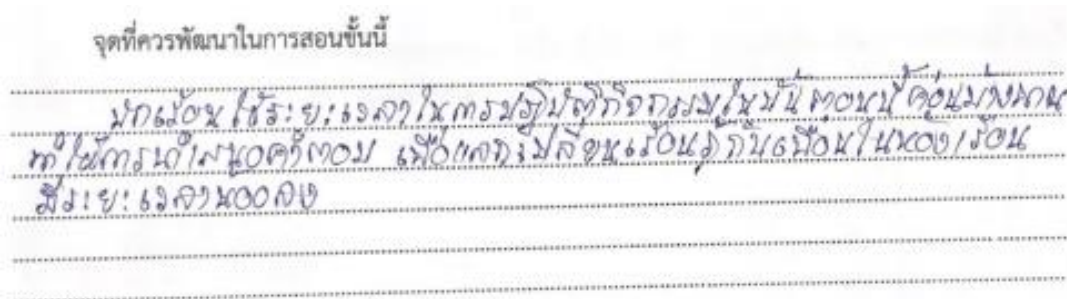 จุดที่ควรพัฒนาในการสอนขั้นนี้
นักเรียนใช้ระยะเวลาในการปฏิบัติกิจกรรมในขั้นตอนนี้ค่อนข้างนาน
ทำให้การนำเสนอคำตอบ เพื่อแลกเปลี่ยนเรียนรู้กับเพื่อนในห้องเรียน
มีระยะเวลาน้อยลง